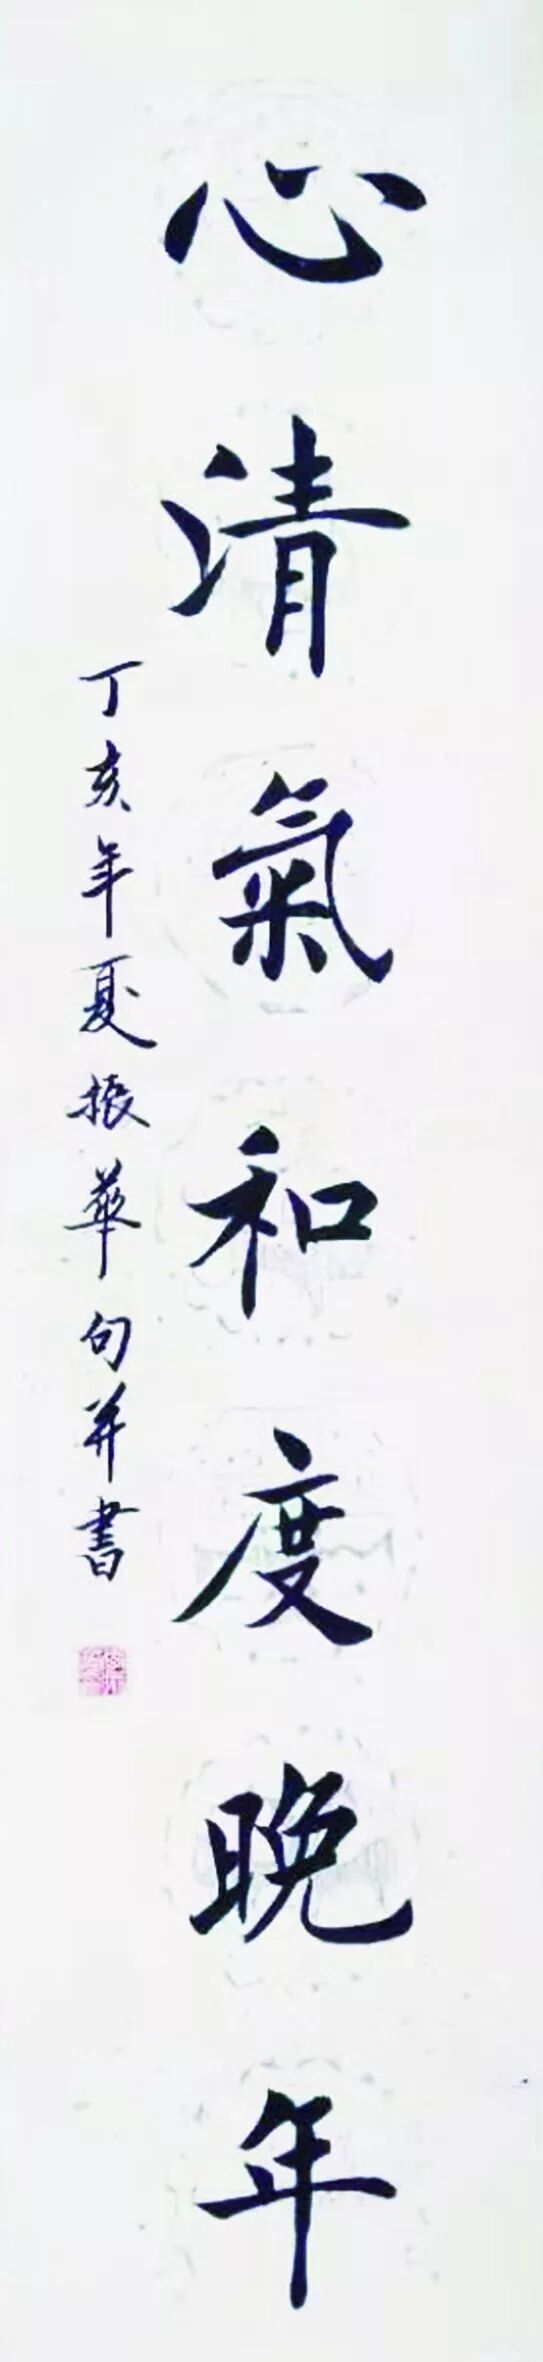 心清氣和度晚年
丁亥年夏振華句并書